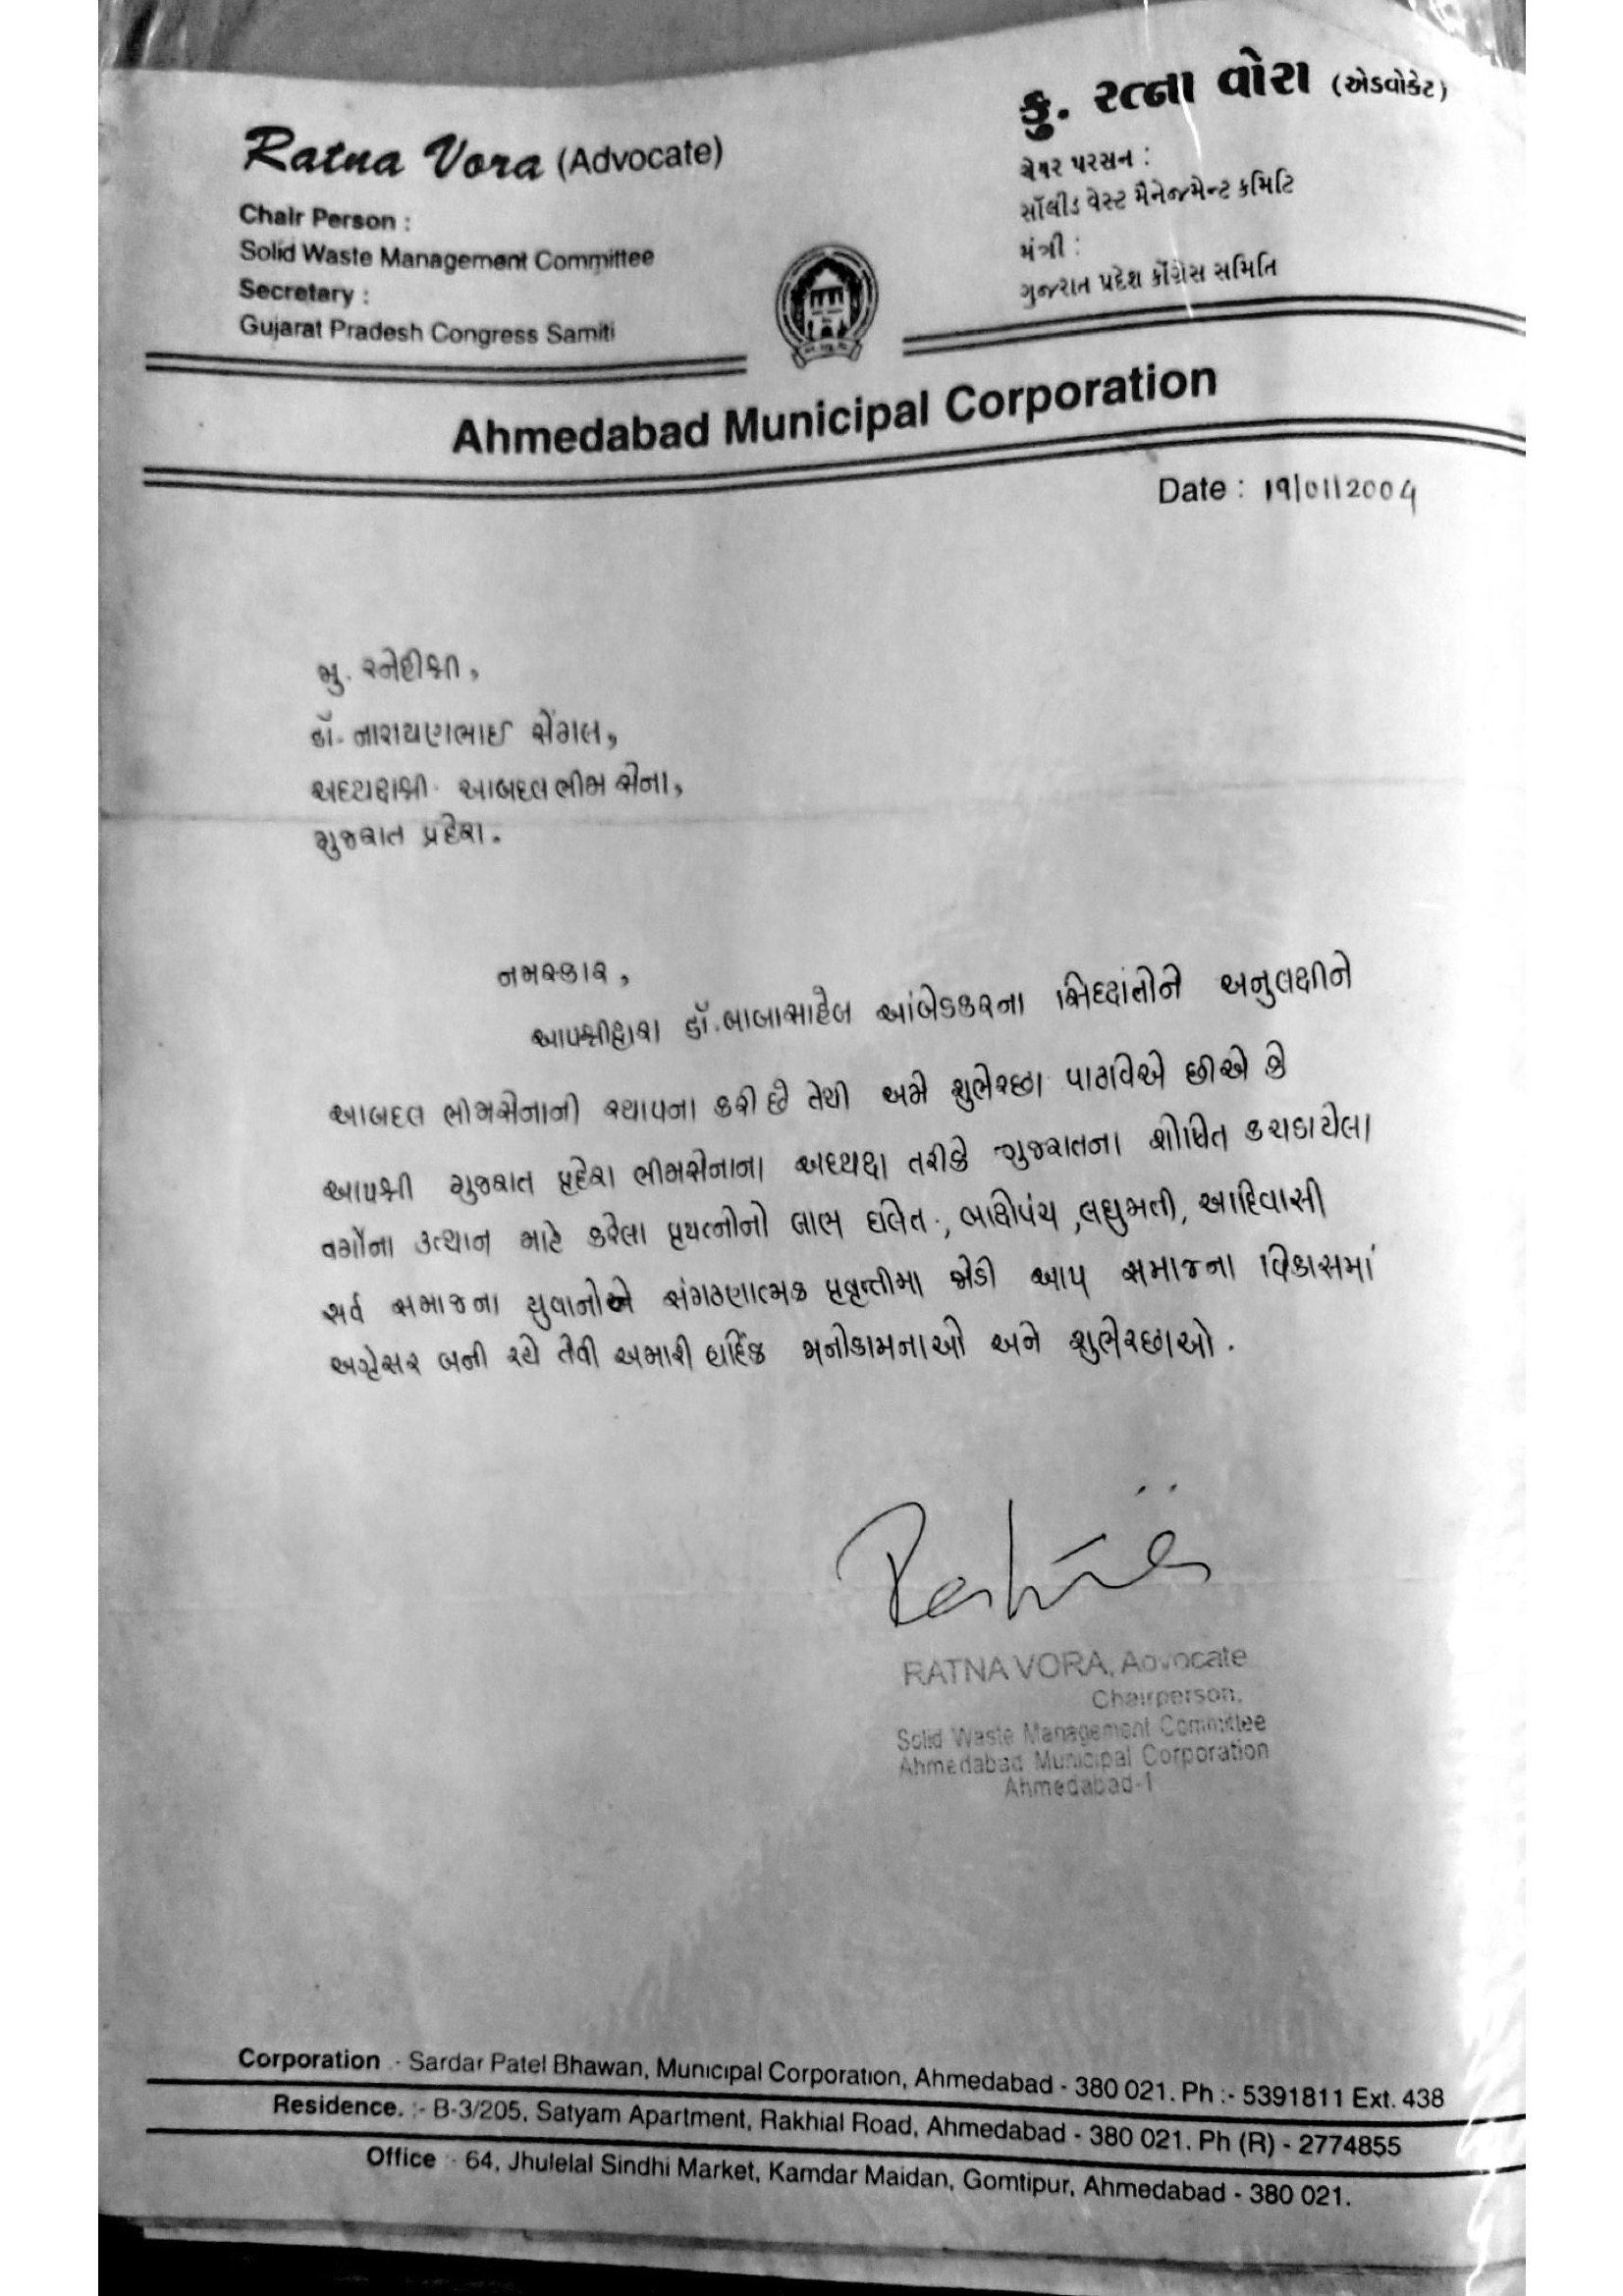 Ratna Vora (Advocate)
Chair Person :
Solid Waste Management Committee
Secretary :
Gujarat Pradesh Congress Samiti
કુ. રત્ના વોરા (એડવોકેટ)
ચેર પરસન :
સૉલીડ વેસ્ટ મૅનેજમેન્ટ કમિટિ
મંત્રી :
ગુજરાત પ્રદેશ કોંગ્રેસ સમિતિ
Ahmedabad Municipal Corporation
Date : 19/01/2004
મુ. સ્નેહીશ્રી,
ડૉ. નારાયણભાઈ સેંગલ,
અધ્યક્ષશ્રી આબદલ ભીમ સેના,
ગુજરાત પ્રદેશ.
નમસ્કાર,
આપશ્રીદ્વારા ડૉ. બાબાસાહેબ આંબેડકરના સિધ્ધાંતોને અનુલક્ષીને
આબદલ ભીમસેનાની સ્થાપના કરી છે તેથી અમે શુભેચ્છા પાઠવિએ છીએ કે
આપશ્રી ગુજરાત પ્રદેશ ભીમસેનાના અધ્યક્ષ તરીકે ગુજરાતના શોષિત કચડાયેલા
વર્ગોના ઉત્થાન માટે કરેલા પ્રયત્નોનો લાભ દલિત, બાક્ષીપંચ, લઘુમતી, આદિવાસી
સર્વ સમાજના યુવાનોને સંગઠણાત્મક પ્રવૃત્તીમા જોડી આપ સમાજના વિકાસમાં
અગ્રેસર બની રહો તેવી અમારી હાર્દિક મનોકામનાઓ અને શુભેચ્છાઓ.
RATNA VORA, Advocate
Chairperson,
Solid Waste Management Committee
Ahmedabad Municipal Corporation
Ahmedabad-1
Corporation :- Sardar Patel Bhawan, Municipal Corporation, Ahmedabad - 380 021. Ph :- 5391811 Ext. 438
Residence. :- B-3/205, Satyam Apartment, Rakhial Road, Ahmedabad - 380 021. Ph (R) - 2774855
Office :- 64, Jhulelal Sindhi Market, Kamdar Maidan, Gomtipur, Ahmedabad - 380 021.